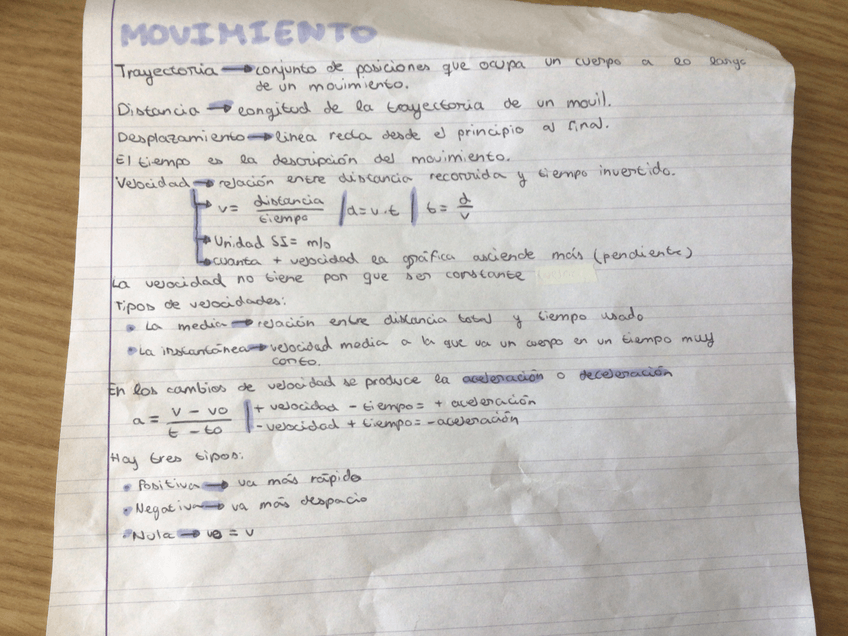 MOVIMIENTO
Trayectoria → conjunto de posiciones que ocupa un cuerpo a lo largo
de un movimiento.
Distancia → longitud de la trayectoria de un movil.
Desplazamiento → linea recta desde el principio al final.
El tiempo es la descripción del movimiento.
Velocidad → relación entre distancia recorrida y tiempo invertido.
→ v = distancia / tiempo | d = v · t | t = d / v
→ Unidad SI = m/s
→ cuanta + velocidad la gráfica asciende más (pendiente)
La velocidad no tiene por que ser constante
Tipos de velocidades:
• La media → relación entre distancia total y tiempo usado
• La instantánea → velocidad media a la que va un cuerpo en un tiempo muy
corto.
En los cambios de velocidad se produce la aceleración o deceleración
a = v - vo / t - to | + velocidad - tiempo = + aceleración
- velocidad + tiempo = - aceleración
Hay tres tipos:
• Positiva → va más rápido
• Negativa → va más despacio
• Nula → vo = v